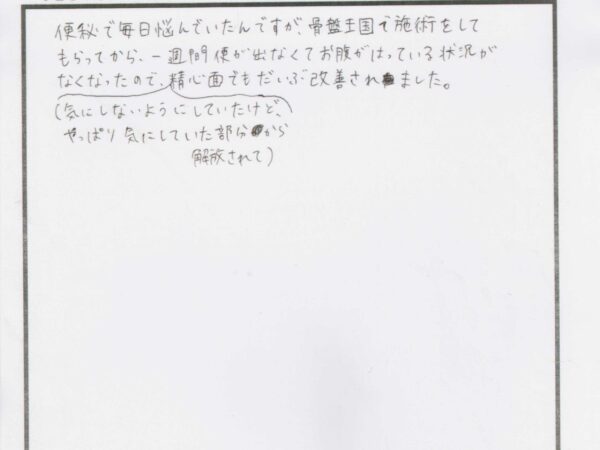 便秘で毎日悩んでいたんですが、骨盤王国で施術をして
もらってから、一週間便が出なくてお腹がはっている状況が
なくなったので、精心面でもだいぶ改善されました。
(気にしないようにしていたけど、
やっぱり気にしていた部分から
解放されて)